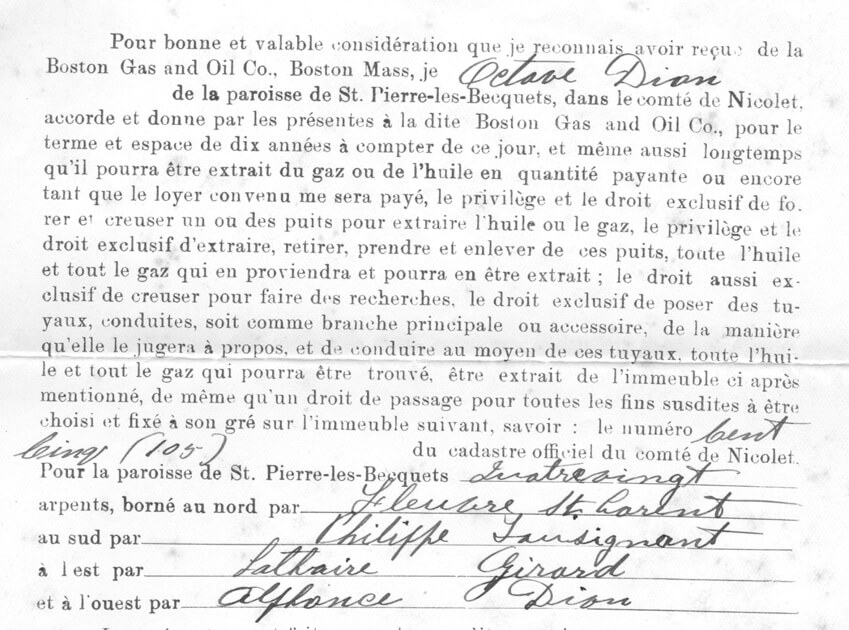 Pour bonne et valable considération que je reconnais avoir reçue de la
Boston Gas and Oil Co., Boston Mass, je Octave Dion
de la paroisse de St. Pierre-les-Becquets, dans le comté de Nicolet,
accorde et donne par les présentes à la dite Boston Gas and Oil Co., pour le
terme et espace de dix années à compter de ce jour, et même aussi longtemps
qu'il pourra être extrait du gaz ou de l'huile en quantité payante ou encore
tant que le loyer convenu me sera payé, le privilège et le droit exclusif de fo-
rer et creuser un ou des puits pour extraire l'huile ou le gaz, le privilège et le
droit exclusif d'extraire, retirer, prendre et enlever de ces puits, toute l'huile
et tout le gaz qui en proviendra et pourra en être extrait ; le droit aussi ex-
clusif de creuser pour faire des recherches, le droit exclusif de poser des tu-
yaux, conduites, soit comme branche principale ou accessoire, de la manière
qu'elle le jugera à propos, et de conduire au moyen de ces tuyaux, toute l'hui-
le et tout le gaz qui pourra être trouvé, être extrait de l'immeuble ci après
mentionné, de même qu'un droit de passage pour toutes les fins susdites à être
choisi et fixé à son gré sur l'immeuble suivant, savoir : le numéro Cent
Cinq (105) du cadastre officiel du comté de Nicolet.
Pour la paroisse de St. Pierre-les-Becquets Quatrevingt
arpents, borné au nord par Fleuvre St. Laurent
au sud par Philippe Tousignant
à l'est par Lothaire Girard
et à l'ouest par Alphonce Dion